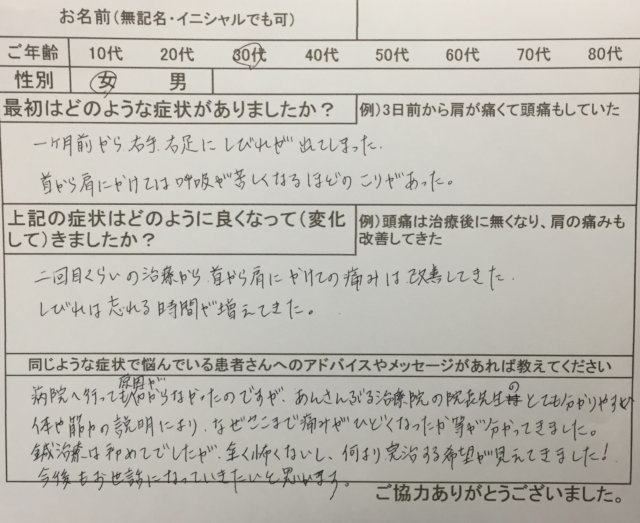 お名前(無記名・イニシャルでも可)
ご年齢 10代 20代 30代 40代 50代 60代 70代 80代
性別 女 男
最初はどのような症状がありましたか? 例)3日前から肩が痛くて頭痛もしていた
一ヶ月前から右手右足にしびれが出てしまった.
首から肩にかけては呼吸が苦しくなるほどのこりがあった。
上記の症状はどのように良くなって(変化して)きましたか? 例)頭痛は治療後に無くなり、肩の痛みも改善してきた
二回目くらいの治療から首から肩にかけての痛みは改善してきた.
しびれは忘れる時間が増えてきた。
同じような症状で悩んでいる患者さんへのアドバイスやメッセージがあれば教えてください
病院へ行っても原因がわからなかったのですが、あんさんぶる治療院の院長先生のとても分かりやすい
体や筋肉の説明により、なぜここまで痛みがひどくなったか等が分かってきました。
鍼治療は初めてでしたが、全く怖くないし、何より完治する希望が見えてきました!
今後もお世話になっていきたいと思います。
ご協力ありがとうございました。